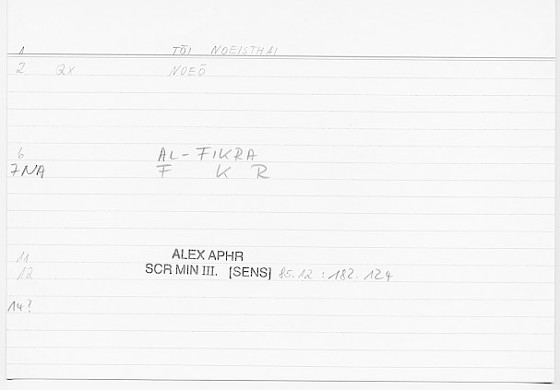 1 TŌI NOEISTHAI
2 QX NOEŌ
6 AL-FIKRA
7NA F K R
11 ALEX APHR
12 SCR MIN III. [SENS] 85.12 : 182.124
14?